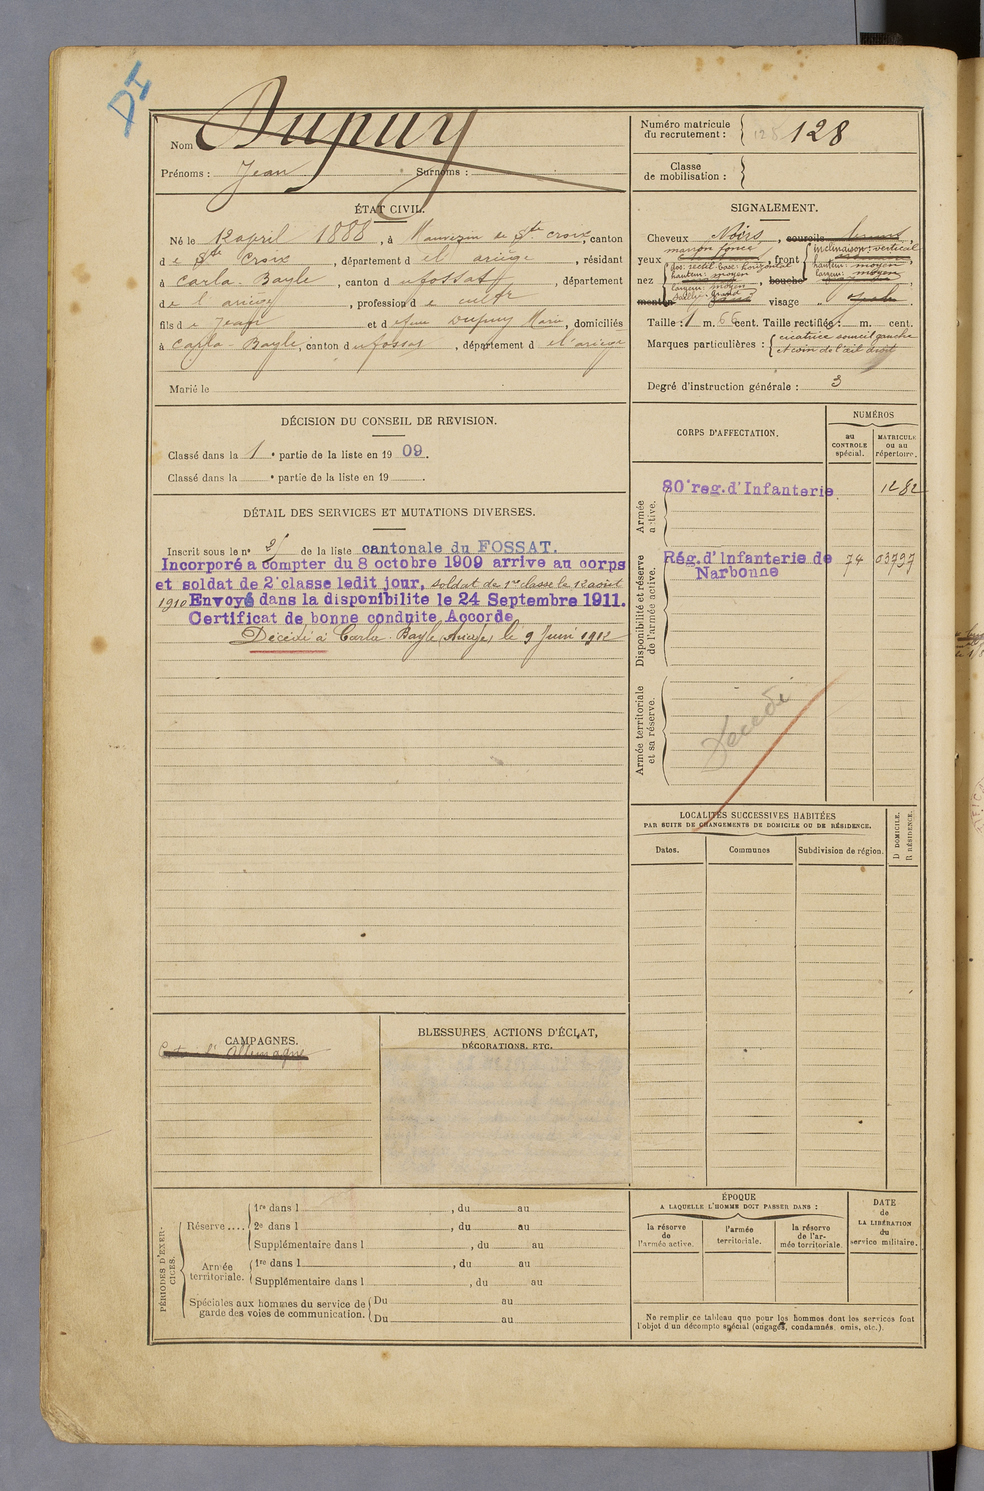 DI
Nom Dupuy
Prénoms : Jean Surnoms :
Numéro matricule
du recrutement : 128
Classe
de mobilisation :
ÉTAT CIVIL.
Né le 12 april 1888, à Mauvezin de Ste Croix, canton
de Ste Croix, département de l'ariège, résidant
à Carla-Bayle, canton du fossat, département
de l'ariège, profession de cultr
fils de Jean et de feue Dupuy Marie, domiciliés
à Carla-Bayle, canton du fossat, département de l'ariège
Marié le
SIGNALEMENT.
Cheveux Noirs, sourcils bruns
marron foncé
yeux , front inclinaison: verticale
hauteur: moyen
largeur: moyen
nez dos: rectil. base: horizontal
hauteur: moyen
largeur: moyen
saillie: grand
, bouche
menton visage
Taille : 1 m. 66 cent. Taille rectifiée : m. cent.
Marques particulières : cicatrice sourcil gauche
et coin de l'œil droit
Degré d'instruction générale : 3
DÉCISION DU CONSEIL DE REVISION.
Classé dans la 1 e partie de la liste en 1909.
Classé dans la e partie de la liste en 19 .
DÉTAIL DES SERVICES ET MUTATIONS DIVERSES.
Inscrit sous le no de la liste cantonale du FOSSAT.
Incorporé à compter du 8 octobre 1909 arrive au corps
et soldat de 2e classe ledit jour, soldat de 1re classe le 12 août
1910 Envoyé dans la disponibilite le 24 Septembre 1911.
Certificat de bonne conduite Accorde
Décédé à Carla-Bayle (Ariège) le 9 Juin 1912
CORPS D'AFFECTATION.
NUMÉROS
au
CONTROLE
spécial.
MATRICULE
ou au
répertoire.
Armée
active.
80e reg. d'Infanterie 1282
Disponibilité et réserve
de l'armée active.
Rég. d'Infanterie de
Narbonne 74 03797
Armée territoriale
et sa réserve.
Décédé
LOCALITÉS SUCCESSIVES HABITÉES
PAR SUITE DE CHANGEMENTS DE DOMICILE OU DE RÉSIDENCE.
Dates.
Communes
Subdivision de région.
D DOMICILE.
R RÉSIDENCE.
CAMPAGNES.
Contre l'Allemagne
BLESSURES, ACTIONS D'ÉCLAT,
DÉCORATIONS, ETC.
PÉRIODES D'EXER-
CICES.
Réserve ....
1re dans l , du au
2e dans l , du au
Supplémentaire dans l , du au
Armée
territoriale.
1re dans l , du au
Supplémentaire dans l , du au
Spéciales aux hommes du service de
garde des voies de communication.
Du au
Du au
ÉPOQUE
A LAQUELLE L'HOMME DOIT PASSER DANS :
la réserve
de
l'armée active.
l'armée
territoriale.
la réserve
de l'ar-
mée territoriale.
DATE
de
LA LIBÉRATION
du
service militaire.
Ne remplir ce tableau que pour les hommes dont les services font
l'objet d'un décompte spécial (engagés, condamnés, omis, etc.).